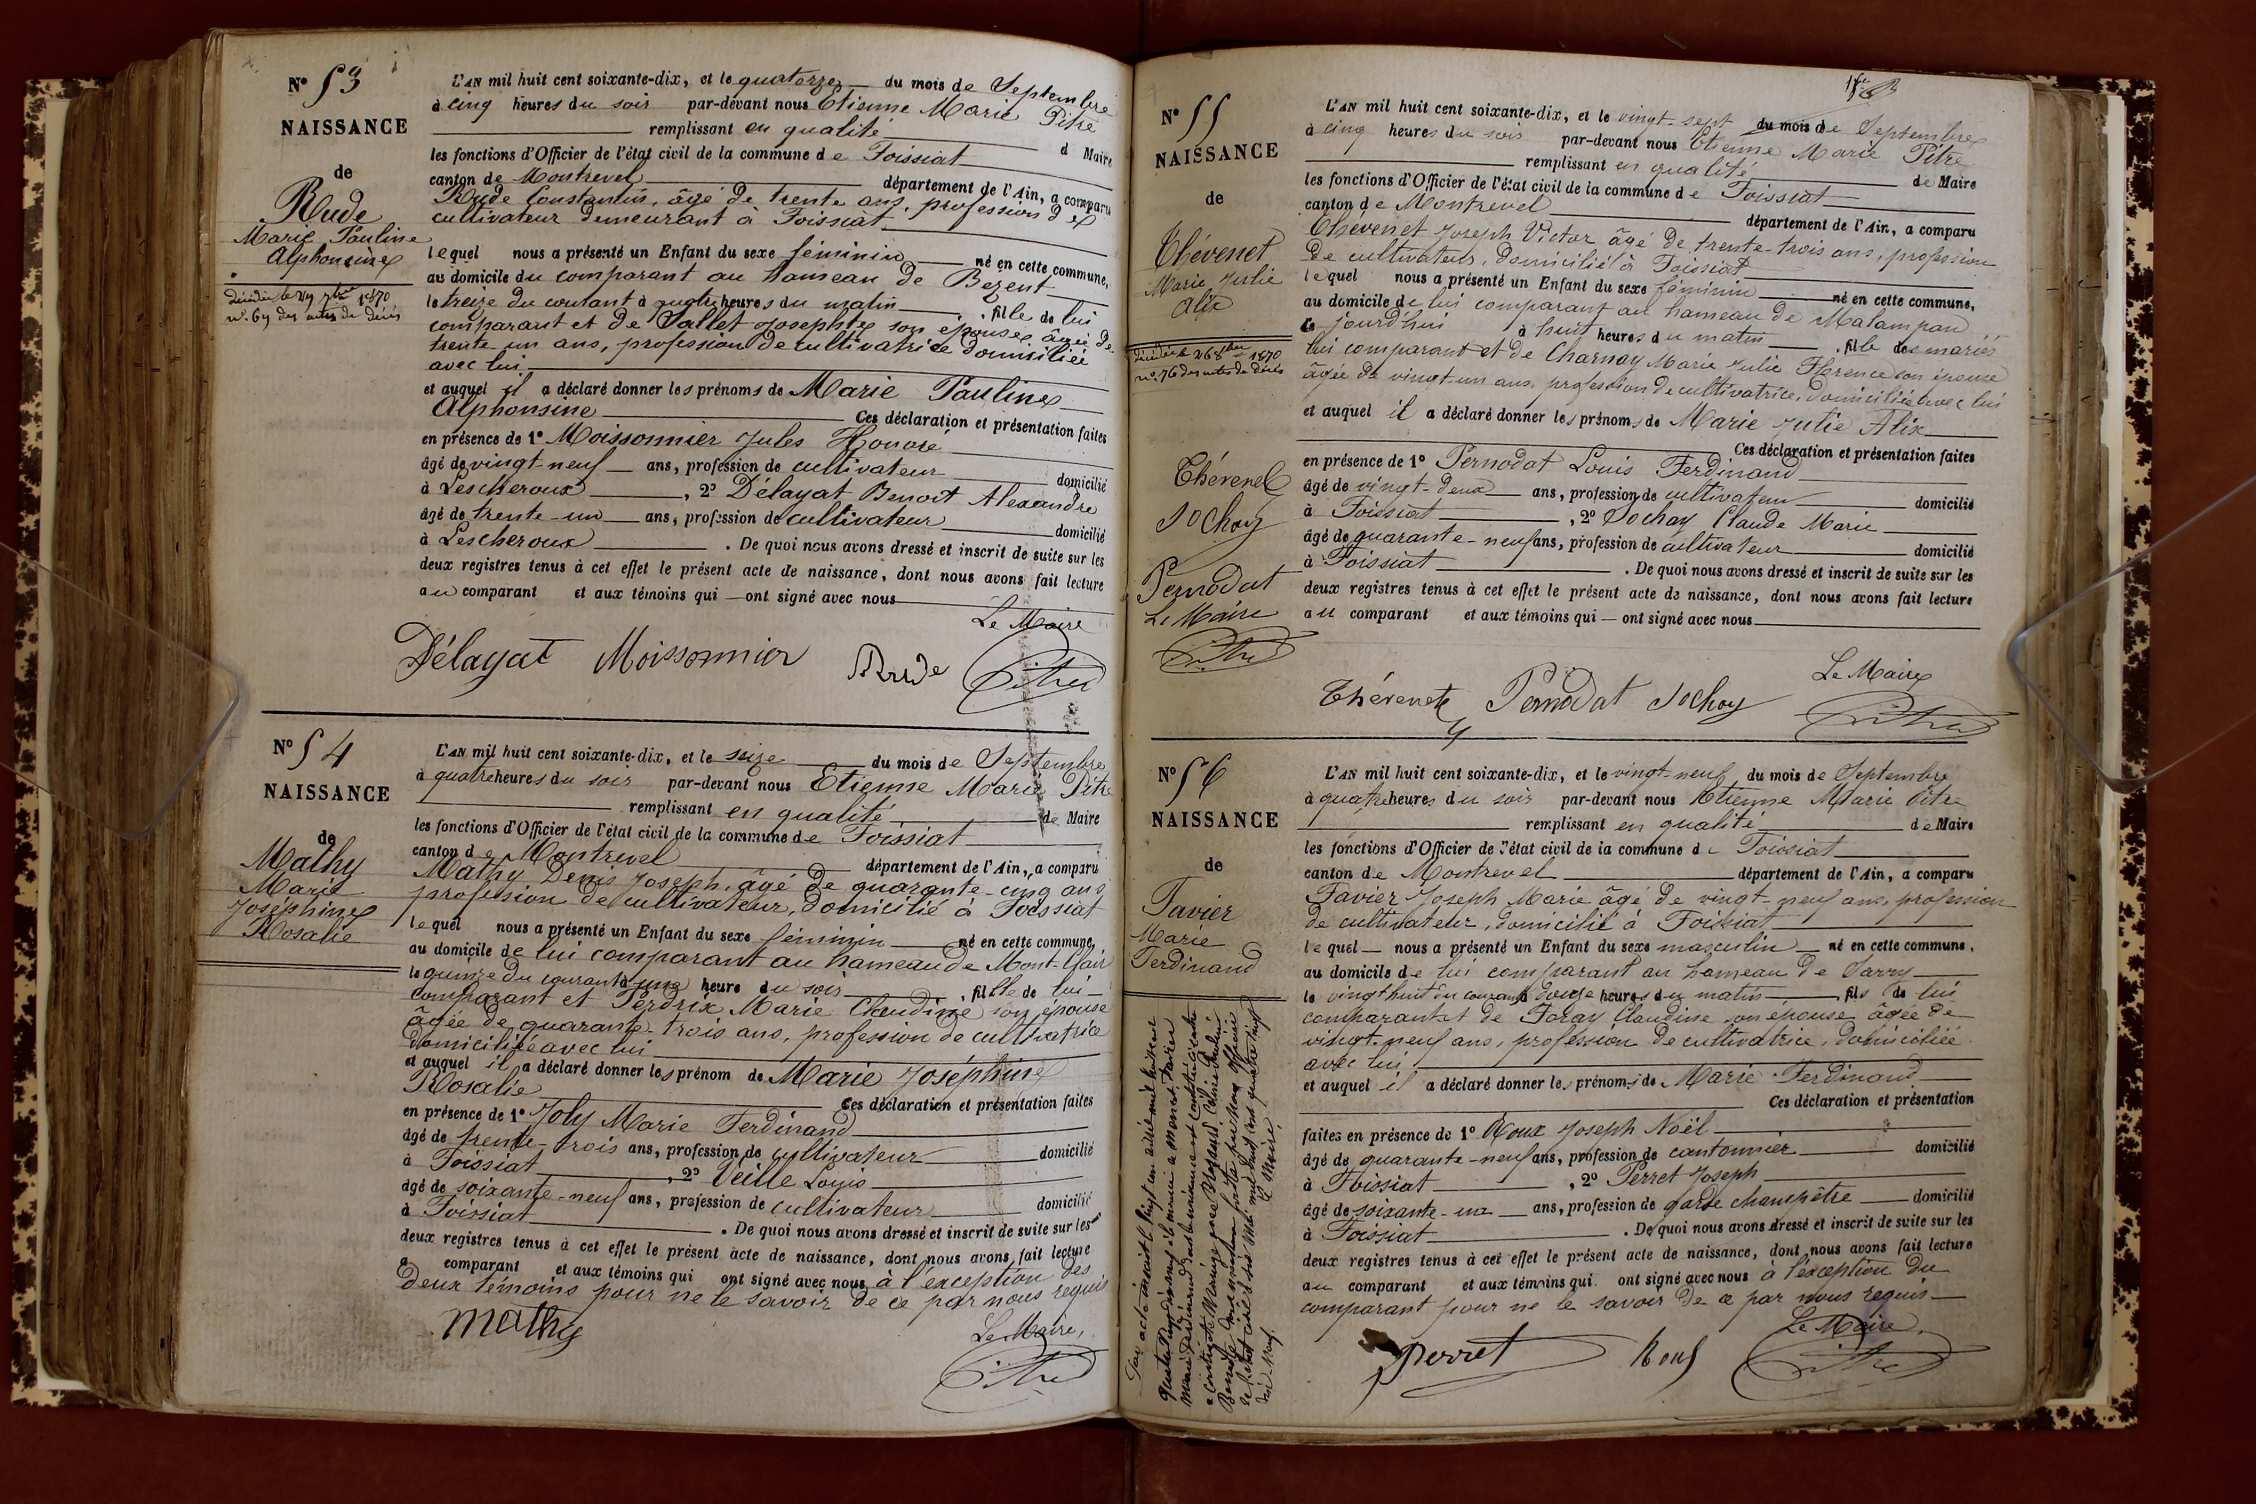 N° 53
NAISSANCE
de
Rude
Marie Pauline
Alphonsine
décédée le 29 7bre 1870
n° 69 des actes de décès
L'AN mil huit cent soixante-dix, et le quatorze du mois de Septembre
à cinq heures du soir par-devant nous Etienne Marie Pitre
remplissant en qualité d Maire
les fonctions d'Officier de l'état civil de la commune de Foissiat
canton de Montrevel département de l'Ain, a comparu
Rude Constantin, âgé de trente ans, profession de
cultivateur demeurant à Foissiat
lequel nous a présenté un Enfant du sexe féminin né en cette commune,
au domicile du comparant au hameau de Bezent
le treize du courant à quatre heures du matin, fille de lui
comparant et de Sallet Josephte son épouse, âgée de
trente-un ans, profession de cultivatrice domiciliée
avec lui
et auquel il a déclaré donner les prénoms de Marie Pauline
Alphonsine Ces déclaration et présentation faites
en présence de 1° Moissonnier Jules Honoré
âgé de vingt-neuf ans, profession de cultivateur domicilié
à Lescheroux, 2° Délayat Benoit Alexandre
âgé de trente-un ans, profession de cultivateur domicilié
à Lescheroux. De quoi nous avons dressé et inscrit de suite sur les
deux registres tenus à cet effet le présent acte de naissance, dont nous avons fait lecture
au comparant et aux témoins qui ont signé avec nous
Le Maire
Délayat Moissonnier Rude Pitre
N° 54
NAISSANCE
de
Mathy
Marie
Joséphine
Rosalie
L'AN mil huit cent soixante-dix, et le seize du mois de Septembre
à quatre heures du soir par-devant nous Etienne Marie Pitre
remplissant en qualité de Maire
les fonctions d'Officier de l'état civil de la commune de Foissiat
canton de Montrevel département de l'Ain, a comparu
Mathy Denis Joseph, âgé de quarante-cinq ans
profession de cultivateur, domicilié à Foissiat
lequel nous a présenté un Enfant du sexe féminin né en cette commune,
au domicile de lui comparant au hameau de Mont-Clair
le quinze du courant à une heure du soir, fille de lui
comparant et Perdrix Marie Claudine son épouse
âgée de quarante-trois ans, profession de cultivatrice
domiciliée avec lui
et auquel il a déclaré donner les prénom de Marie Joséphine
Rosalie Ces déclaration et présentation faites
en présence de 1° Joly Marie Ferdinand
âgé de trente-trois ans, profession de cultivateur domicilié
à Foissiat, 2° Veille Louis
âgé de soixante-neuf ans, profession de cultivateur domicilié
à Foissiat. De quoi nous avons dressé et inscrit de suite sur les
deux registres tenus à cet effet le présent acte de naissance, dont nous avons fait lecture
a comparant et aux témoins qui ont signé avec nous à l'exception des
deux témoins pour ne le savoir de ce par nous requis
Le Maire,
Mathy Pitre
N° 55
NAISSANCE
de
Thévenet
Marie Julie
Alix
décédée le 26 8bre 1870
n° 76 des actes de décès
Thévenet
Sochay
Pernodat
Le Maire
Pitre
L'AN mil huit cent soixante-dix, et le vingt-sept du mois de Septembre
à cinq heures du soir par-devant nous Etienne Marie Pitre
remplissant en qualité de Maire
les fonctions d'Officier de l'état civil de la commune de Foissiat
canton de Montrevel département de l'Ain, a comparu
Thévenet Joseph Victor âgé de trente-trois ans, profession
de cultivateur, domicilié à Foissiat
lequel nous a présenté un Enfant du sexe féminin né en cette commune,
au domicile de lui comparant au hameau de Malampan
ce jourd'hui à huit heures du matin, fille des mariés
lui comparant et de Charnay Marie Julie Florence son épouse
âgée de vingt-un ans, profession de cultivatrice, domiciliée avec lui
et auquel il a déclaré donner les prénoms de Marie Julie Alix
Ces déclaration et présentation faites
en présence de 1° Pernodat Louis Ferdinand
âgé de vingt-deux ans, profession de cultivateur domicilié
à Foissiat, 2° Sochay Claude Marie
âgé de quarante-neuf ans, profession de cultivateur domicilié
à Foissiat. De quoi nous avons dressé et inscrit de suite sur les
deux registres tenus à cet effet le présent acte de naissance, dont nous avons fait lecture
au comparant et aux témoins qui ont signé avec nous
Le Maire
Thévenet Pernodat Sochay Pitre
N° 56
NAISSANCE
de
Favier
Marie
Ferdinand
L'AN mil huit cent soixante-dix, et le vingt-neuf du mois de Septembre
à quatre heures du soir par-devant nous Etienne Marie Pitre
remplissant en qualité de Maire
les fonctions d'Officier de l'état civil de la commune de Foissiat
canton de Montrevel département de l'Ain, a comparu
Favier Joseph Marie âgé de vingt-neuf ans, profession
de cultivateur, domicilié à Foissiat
lequel nous a présenté un Enfant du sexe masculin né en cette commune,
au domicile de lui comparant au hameau de
le vingt huit du courant à douze heures du matin, fils de lui
comparant et de Foray Claudine son épouse âgée de
vingt-neuf ans, profession de cultivatrice, domiciliée
avec lui
et auquel il a déclaré donner les prénoms de Marie Ferdinand
Ces déclaration et présentation
faites en présence de 1° Roux Joseph Noël
âgé de quarante-neuf ans, profession de cantonnier domicilié
à Foissiat, 2° Perret Joseph
âgé de soixante-un ans, profession de garde champêtre domicilié
à Foissiat. De quoi nous avons dressé et inscrit de suite sur les
deux registres tenus à cet effet le présent acte de naissance, dont nous avons fait lecture
au comparant et aux témoins qui ont signé avec nous à l'exception du
comparant pour ne le savoir de ce par nous requis
Le Maire,
Perret Roux Pitre